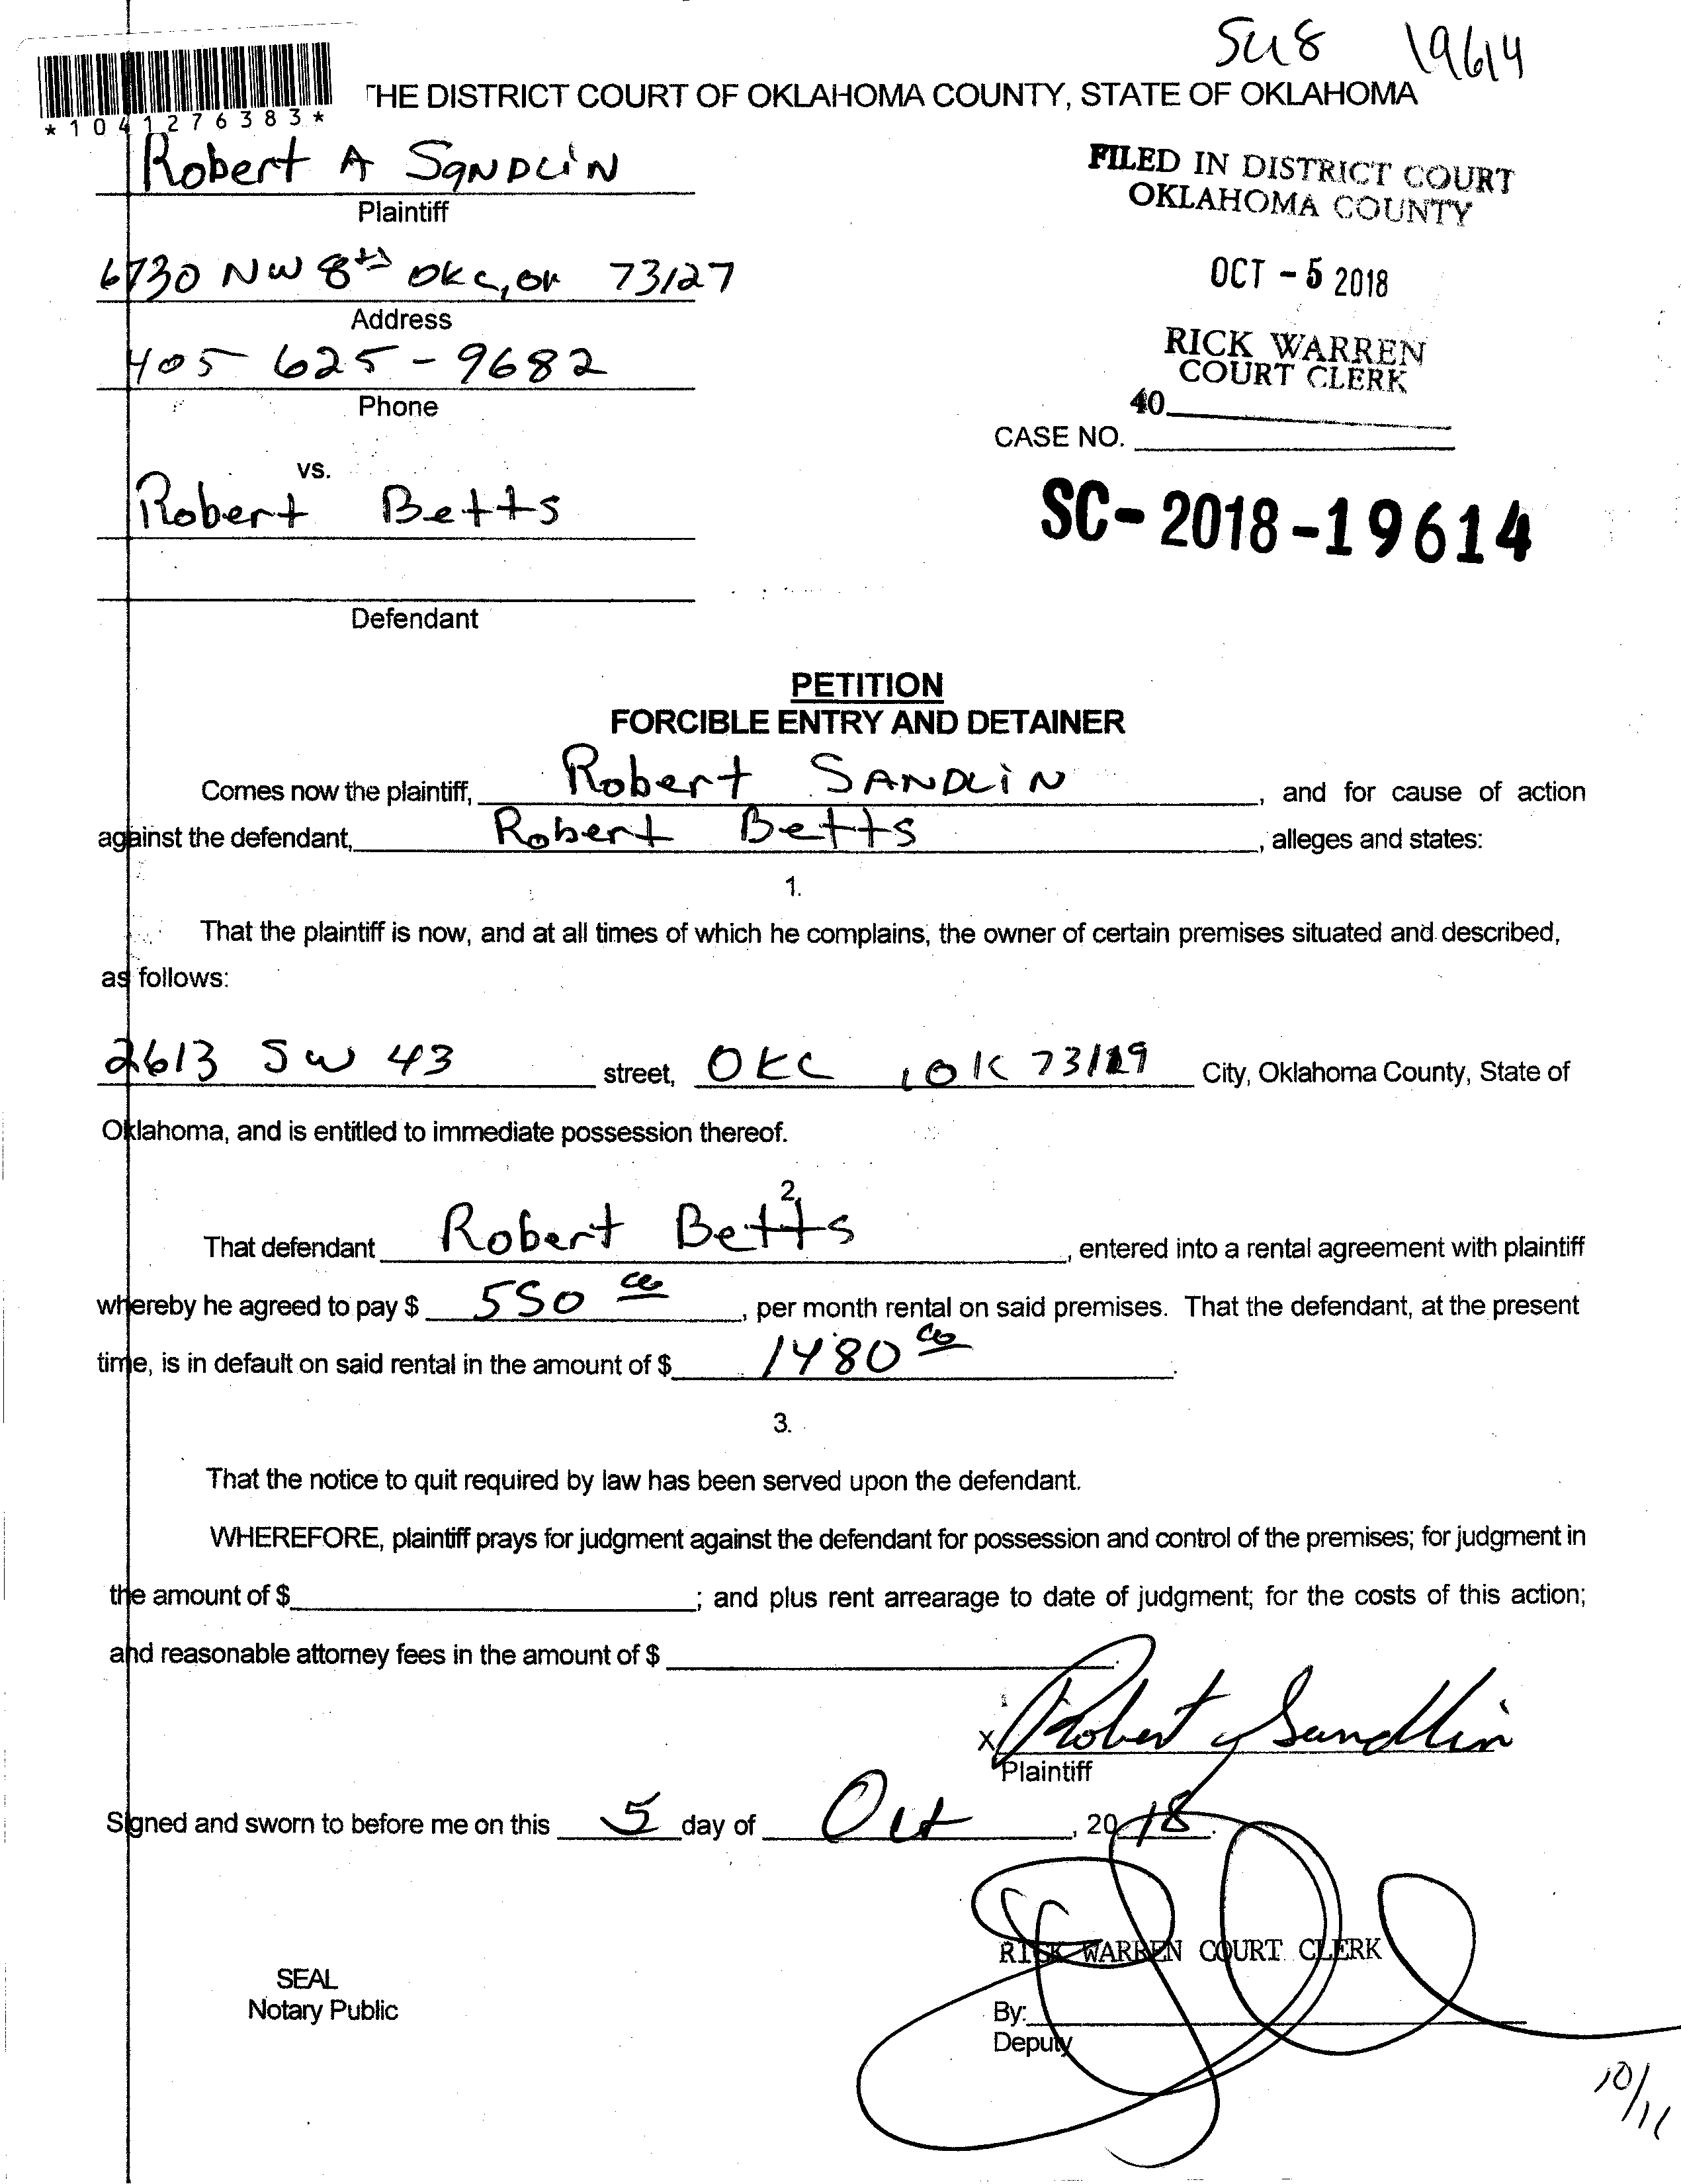 SU8 19614
THE DISTRICT COURT OF OKLAHOMA COUNTY, STATE OF OKLAHOMA
*1041276383*
Robert A SANDLIN
Plaintiff
FILED IN DISTRICT COURT
OKLAHOMA COUNTY
6730 NW 8th OKC, OK 73127
Address
OCT - 5 2018
405 625-9682
Phone
RICK WARREN
COURT CLERK
40
CASE NO.
vs.
Robert Betts
SC-2018-19614
Defendant
PETITION
FORCIBLE ENTRY AND DETAINER
Comes now the plaintiff, Robert SANDLIN, and for cause of action
against the defendant, Robert Betts, alleges and states:
1.
That the plaintiff is now, and at all times of which he complains, the owner of certain premises situated and described,
as follows:
2613 SW 43 street, OKC, OK 73119 City, Oklahoma County, State of
Oklahoma, and is entitled to immediate possession thereof.
2.
That defendant Robert Betts, entered into a rental agreement with plaintiff
whereby he agreed to pay $ 550 00, per month rental on said premises. That the defendant, at the present
time, is in default on said rental in the amount of $ 1480 00.
3.
That the notice to quit required by law has been served upon the defendant.
WHEREFORE, plaintiff prays for judgment against the defendant for possession and control of the premises; for judgment in
the amount of $ ; and plus rent arrearage to date of judgment; for the costs of this action;
and reasonable attorney fees in the amount of $ .
X Robert Sandlin
Plaintiff
Signed and sworn to before me on this 5 day of Oct, 2018.
RICK WARREN COURT CLERK
SEAL
Notary Public
By:
Deputy
10/11